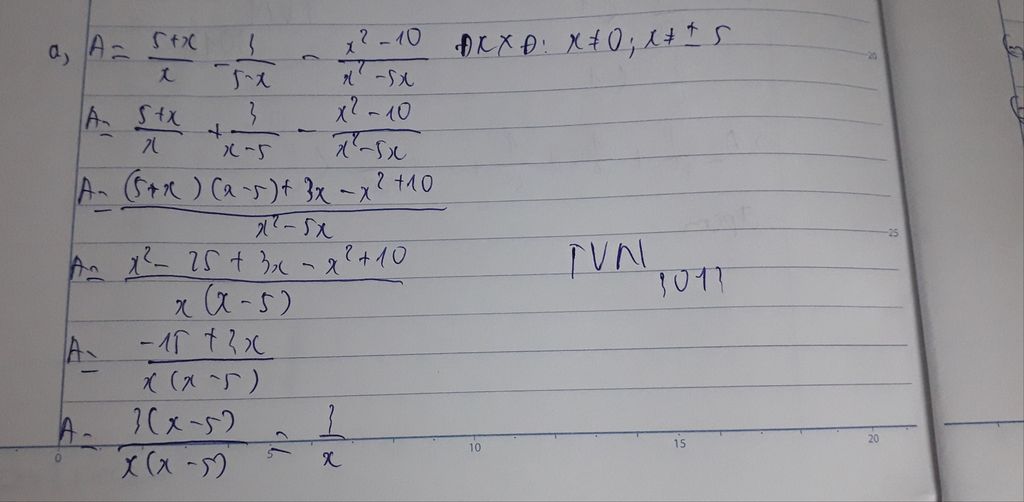 a, A = (5+x)/x - 3/(5-x) - (x² - 10)/(x² - 5x) ĐKXĐ: x ≠ 0; x ≠ ± 5
A = (5+x)/x + 3/(x-5) - (x² - 10)/(x² - 5x)
A = ((5+x)(x-5) + 3x - x² + 10)/(x² - 5x)
A = (x² - 25 + 3x - x² + 10)/(x(x-5))
TVN
3013
A = (-15 + 3x)/(x(x-5))
A = 3(x-5)/(x(x-5)) = 3/x
20
25
0 5 10 15 20